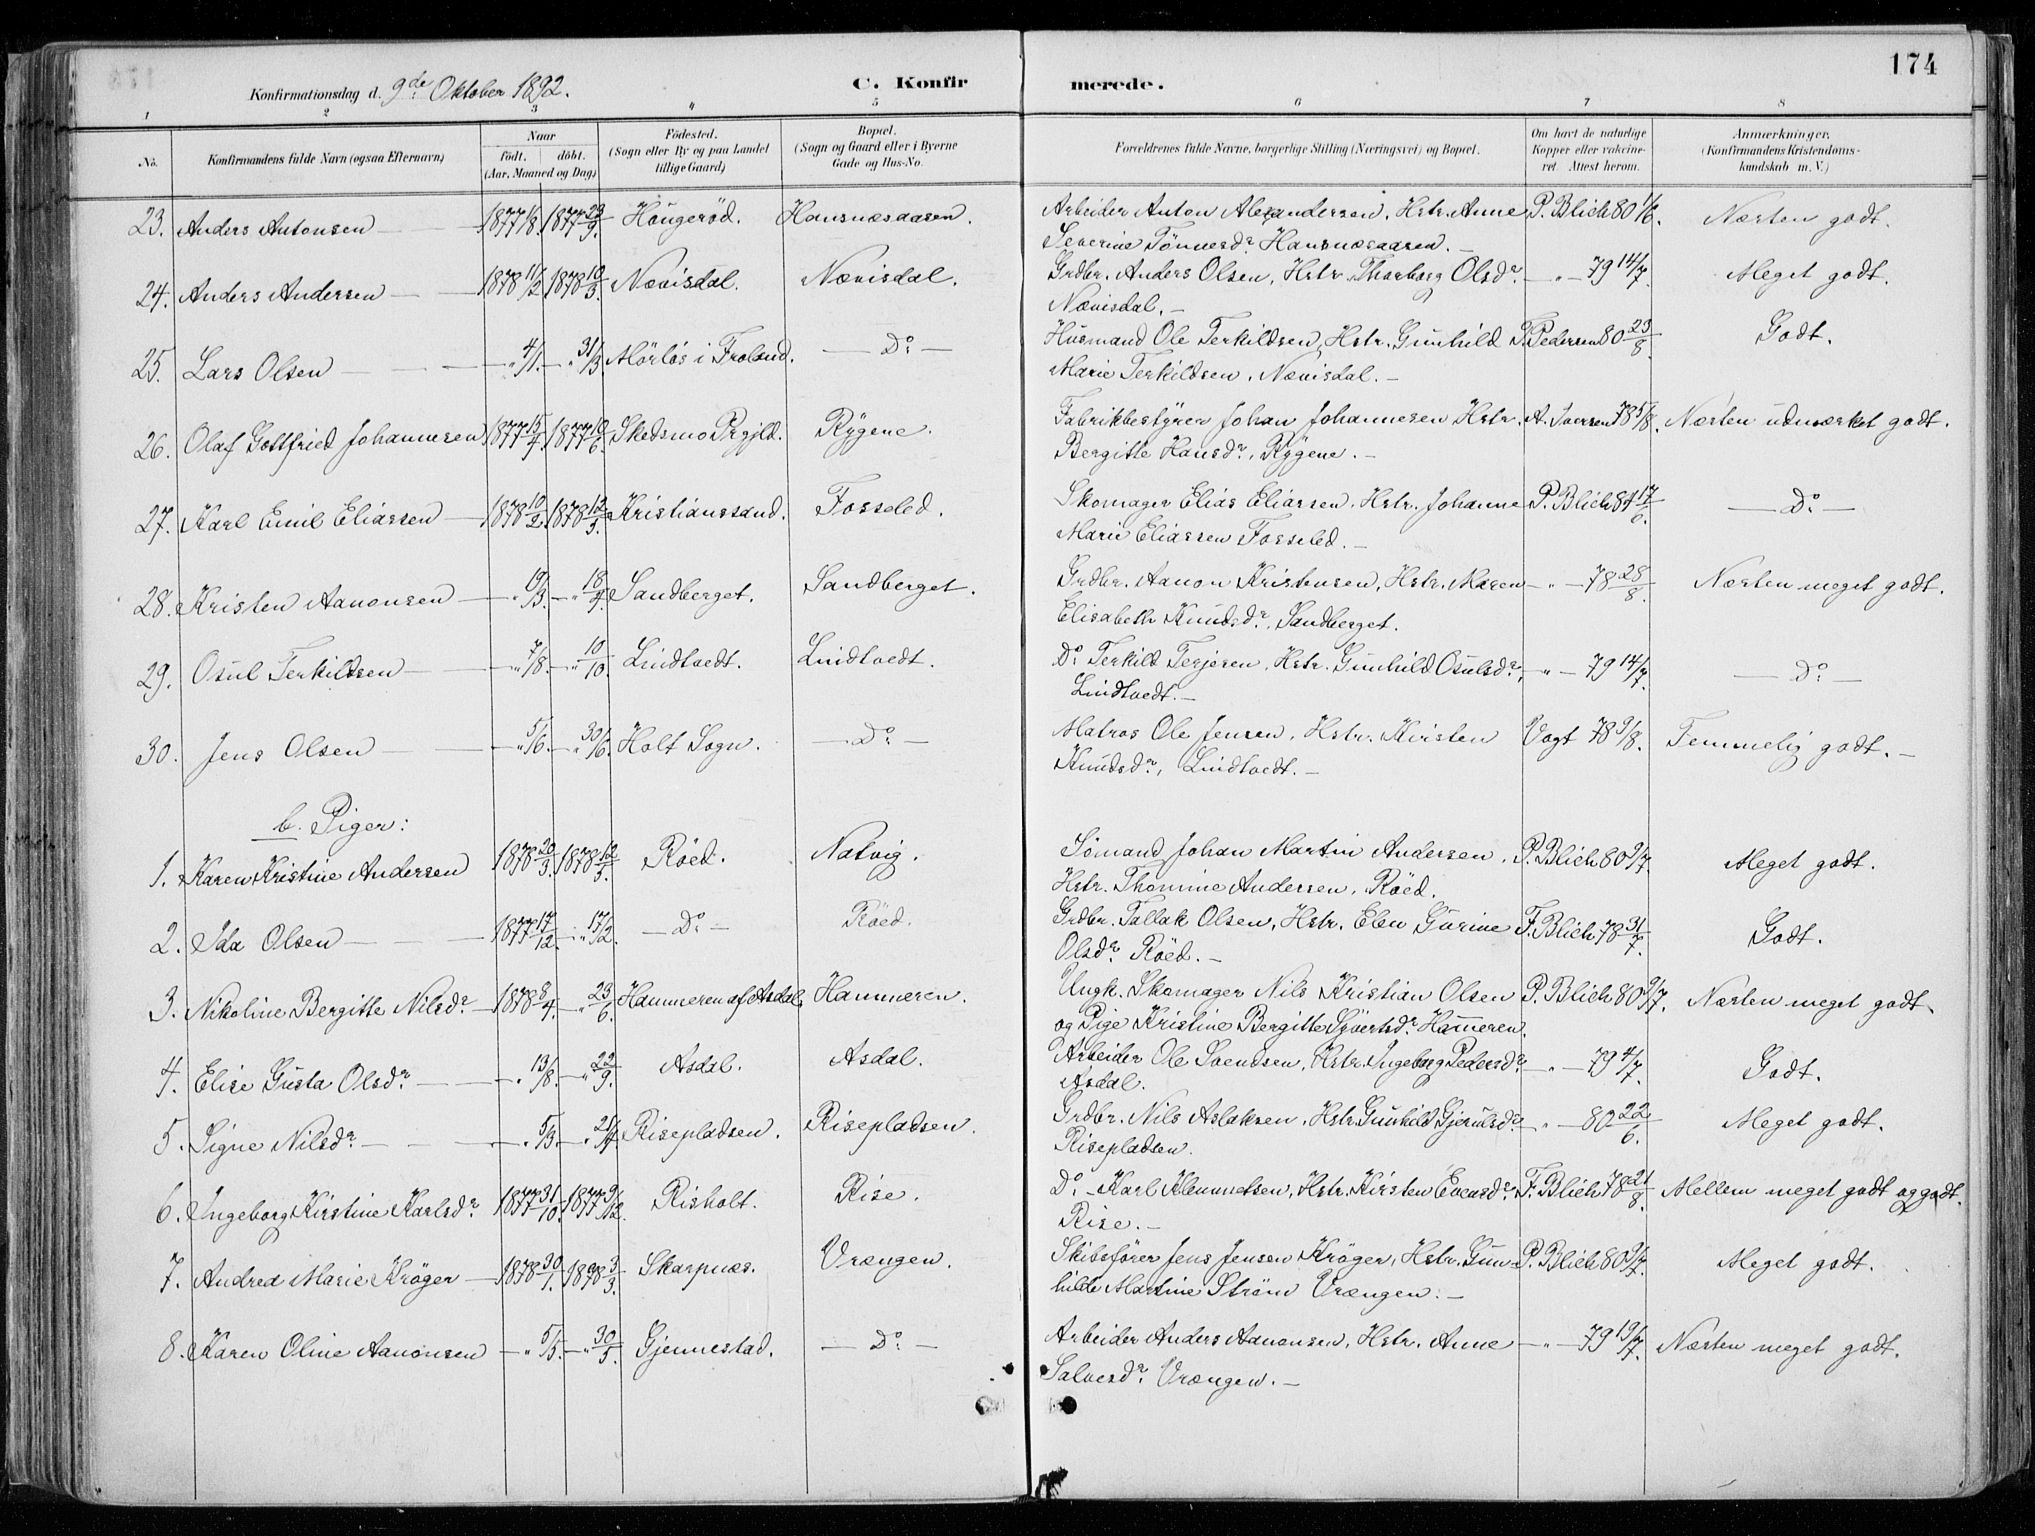 174
Konfirmationsdag d. 9de Oktober 1892. C. Konfirmerede.
1 2 3 " 5 6 7 8
No. Konfirmandens fulde Navn (ogsaa Efternavn) Naar født. døbt. (Aar, Maaned og Dag) Fødested. (Sogn eller By og paa Landet tillige Gaard) Bopæl. (Sogn og Gaard eller i Byerne Gade og Hus-No. Forældrenes fulde Navne, borgerlige Stilling (Næringsvei) og Bopæl. Om havt de naturlige Kopper eller vakcineret. Attest herom. Anmærkninger. (Konfirmandens Kristendomskundskab m. V.)
23. Anders Antonsen 1877 1/8. 1877 23/9. Haugerød. Hansnæsaasen. Arbeider Anton Alexandersen, Hstr. Anne P. Blich 80 1/6. Næsten godt.
Severine Tønnesdr. Hansnæsaasen.
24. Anders Andersen 1878 11/2. 1878 10/3. Nævisdal. Nævisdal. Grdbr. Anders Olsen, Hstr. Thorborg Olsdr. — " — 79 14/7. Meget godt.
Nævisdal.
25. Lars Olsen — " 4/1. — " 31/3. Mörlös i Froland. — Do — Husmand Ole Terkildsen, Hstr. Gunhild T. Pedersen 80 23/8. Godt.
Marie Terkildsen, Nævisdal.
26. Olaf Gottfried Johannesen 1877 15/4. 1877 10/6. Skedsmo Prgjld. Rygene. Fabrikbestyrer Johan Johannesen Hstr. A. Iversen 78 5/8. Næsten udmærket godt.
Bergitte Hansdr., Rygene.
27. Karl Emil Eliassen 1878 10/2. 1878 12/5. Kristianssand. Fosseled. Skomager Elias Eliassen, Hstr. Johanne P. Blich 84 17/6. — Do —
Marie Eliassen Fosseled.
28. Kristen Aanonsen — " 19/3. — " 18/4. Sandberget. Sandberget. Grdbr. Aanon Kristensen, Hstr. Maren — " — 78 28/8. Næsten meget godt.
Elisabeth Knudsdr., Sandberget.
29. Osul Terkildsen — " 7/8. — " 10/10. Lindtvedt. Lindtvedt. Do Terkild Terjesen, Hstr. Gunhild Osulsdr., — " — 79 14/7. — Do —
Lindtvedt.
30. Jens Olsen — " 5/6. — " 30/6. Holt Sogn. — Do — Matros Ole Jensen, Hstr. Kirsten Vogt 78 9/8. Temmelig godt.
Knudsdr., Lindtvedt.
b. Piger:
1. Karen Kristine Andersen 1878 20/3. 1878 12/5. Röed. Natvig. Sömand Johan Martin Andersen, P. Blich 80 9/7. Meget godt.
Hstr. Thomine Andersen, Röed.
2. Ida Olsen 1877 17/12. — " 17/2. — Do — Röed. Grdbr. Tallak Olsen, Hstr. Elen Gurine F. Blich 78 31/7. Godt.
Olsdr. Röed.
3. Nikoline Bergitte Nilsdr. 1878 8/4. — " 23/6. Hammeren af Asdal. Hammeren. Ungk. Skomager Nils Kristian Olsen P. Blich 80 9/7. Næsten meget godt.
og Pige Kristine Bergitte Syvertsdr. Hammeren.
4. Elise Gusta Olsdr. — " 13/8. — " 22/9. Asdal. Asdal. Arbeider Ole Svendsen, Hstr. Ingeborg Pedersdr. — " — 79 4/7. Godt.
Asdal.
5. Signe Nilsdr. — " 5/3. — " 21/4. Risepladsen. Risepladsen. Grdbr. Nils Aslaksen, Hstr. Gunhild Gjerulsdr. — " — 80 22/6. Meget godt.
Risepladsen.
6. Ingeborg Kirstine Karlsdr. 1877 31/10. 1877 9/12. Risholt. Rise. Do — Karl Klemmetsen, Hstr. Kirsten Evensdr. F. Blich 78 21/8. Mellem meget godt og godt.
Rise.
7. Andrea Marie Kröger 1878 30/1. 1878 3/3. Skarpnæs. Vrængen. Skibsfører Jens Jensen Kröger, Hstr. Gun- P. Blich 80 9/7. Meget godt.
hilde Martine Ström Vrængen.
8. Karen Oline Aanonsen — " 5/5. — " 30/5. Gjennestad. — Do — Arbeider Anders Aanonsen, Hstr. Anne — " — 79 19/7. Næsten meget godt.
Salvesdr. Vrængen.